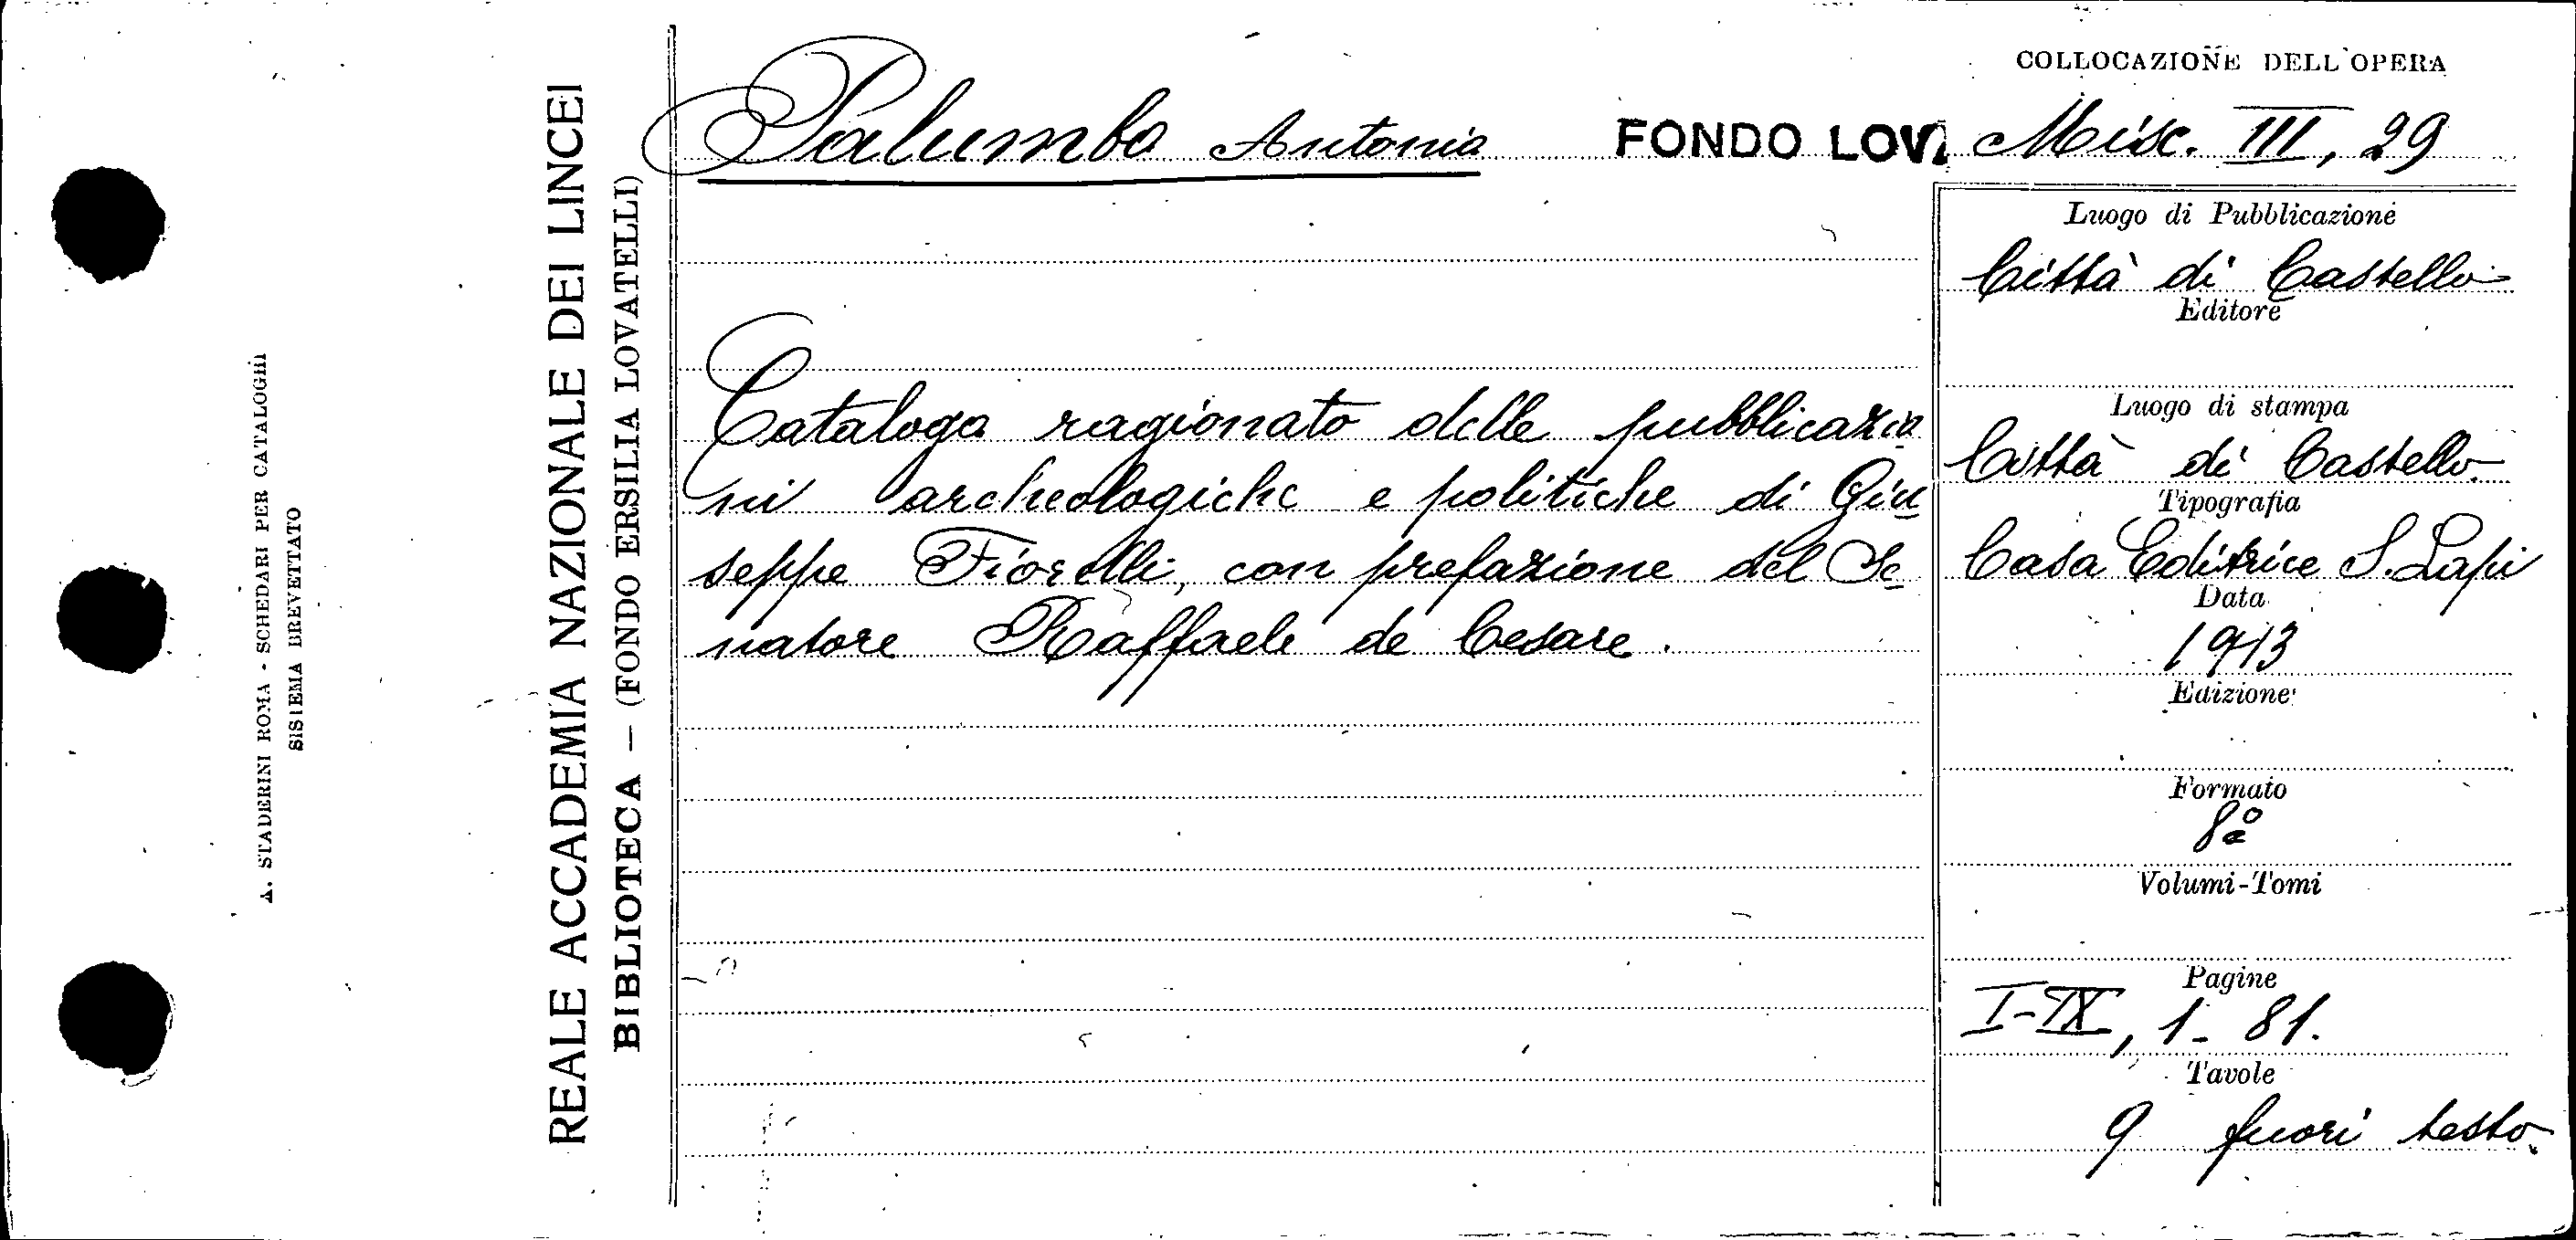 A. STADERINI ROMA - SCHEDARI PER CATALOGHI
SISTEMA BREVETTATO
REALE ACCADEMIA NAZIONALE DEI LINCEI
BIBLIOTECA — (FONDO ERSILIA LOVATELLI)
Palumbo Antonio
FONDO LOV.
COLLOCAZIONE DELL'OPERA
Misc. III, 29
Catalogo ragionato delle pubblicazio
ni archeologiche e politiche di Giu
seppe Fiorelli, con prefazione del Se
natore Raffaele de Cesare.
Luogo di Pubblicazione
Città di Castello
Editore
Luogo di stampa
Città di Castello
Tipografia
Casa Editrice S. Lapi
Data
1913
Edizione
Formato
8º
Volumi-Tomi
Pagine
I-IX, 1-81.
Tavole
9 fuori testo.